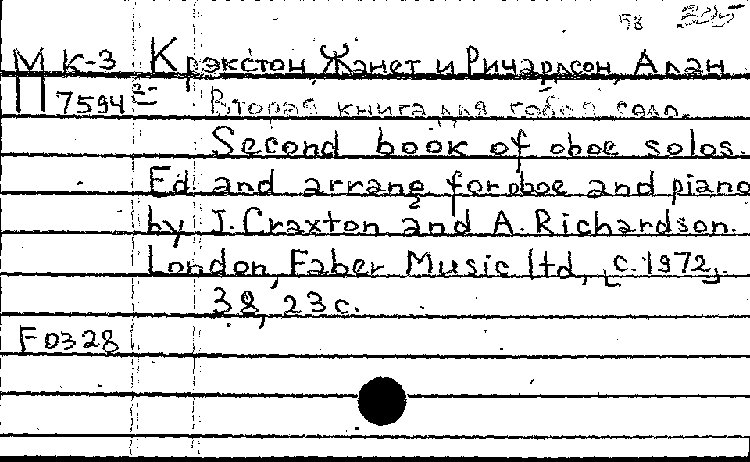 58 325
М К-3 Крэкстон, Жанет и Ричардсон, Алан
П 7594 2- Вторая книга для гобоя соло.
Second book of oboe solos.
Ed. and arrang for oboe and piano
by J. Craxton and A. Richardson.
London, Faber Music ltd, [c. 1972].
38, 23 с.
F0328